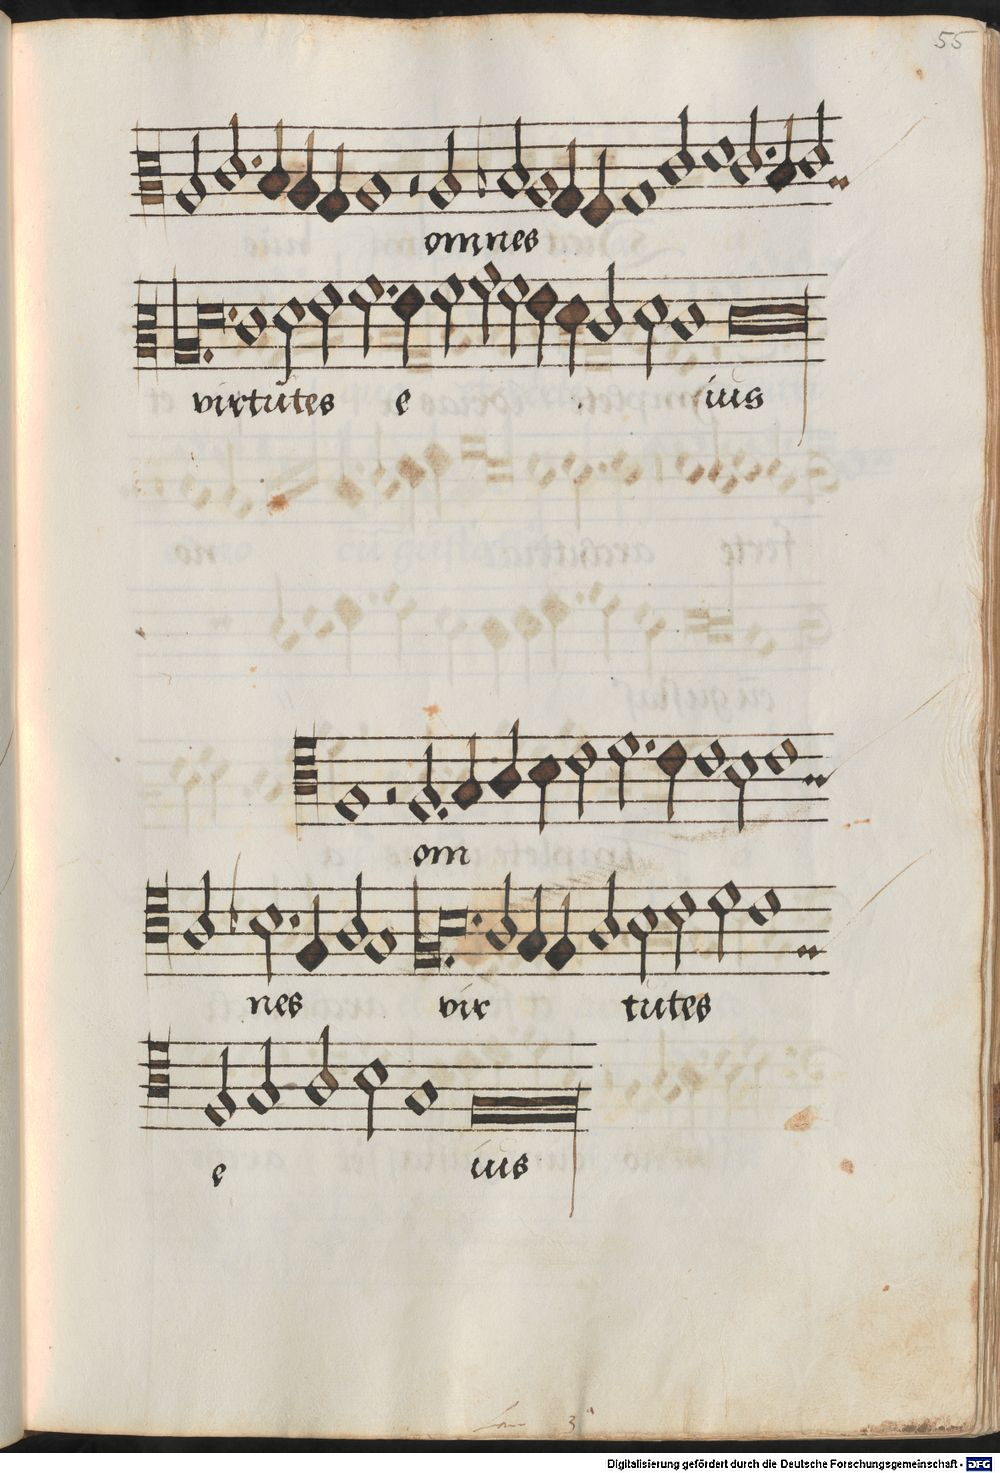 55
omnes
virtutes e ius
om
nes vir tutes
e ius
3
Digitalisierung gefördert durch die Deutsche Forschungsgemeinschaft - DFG